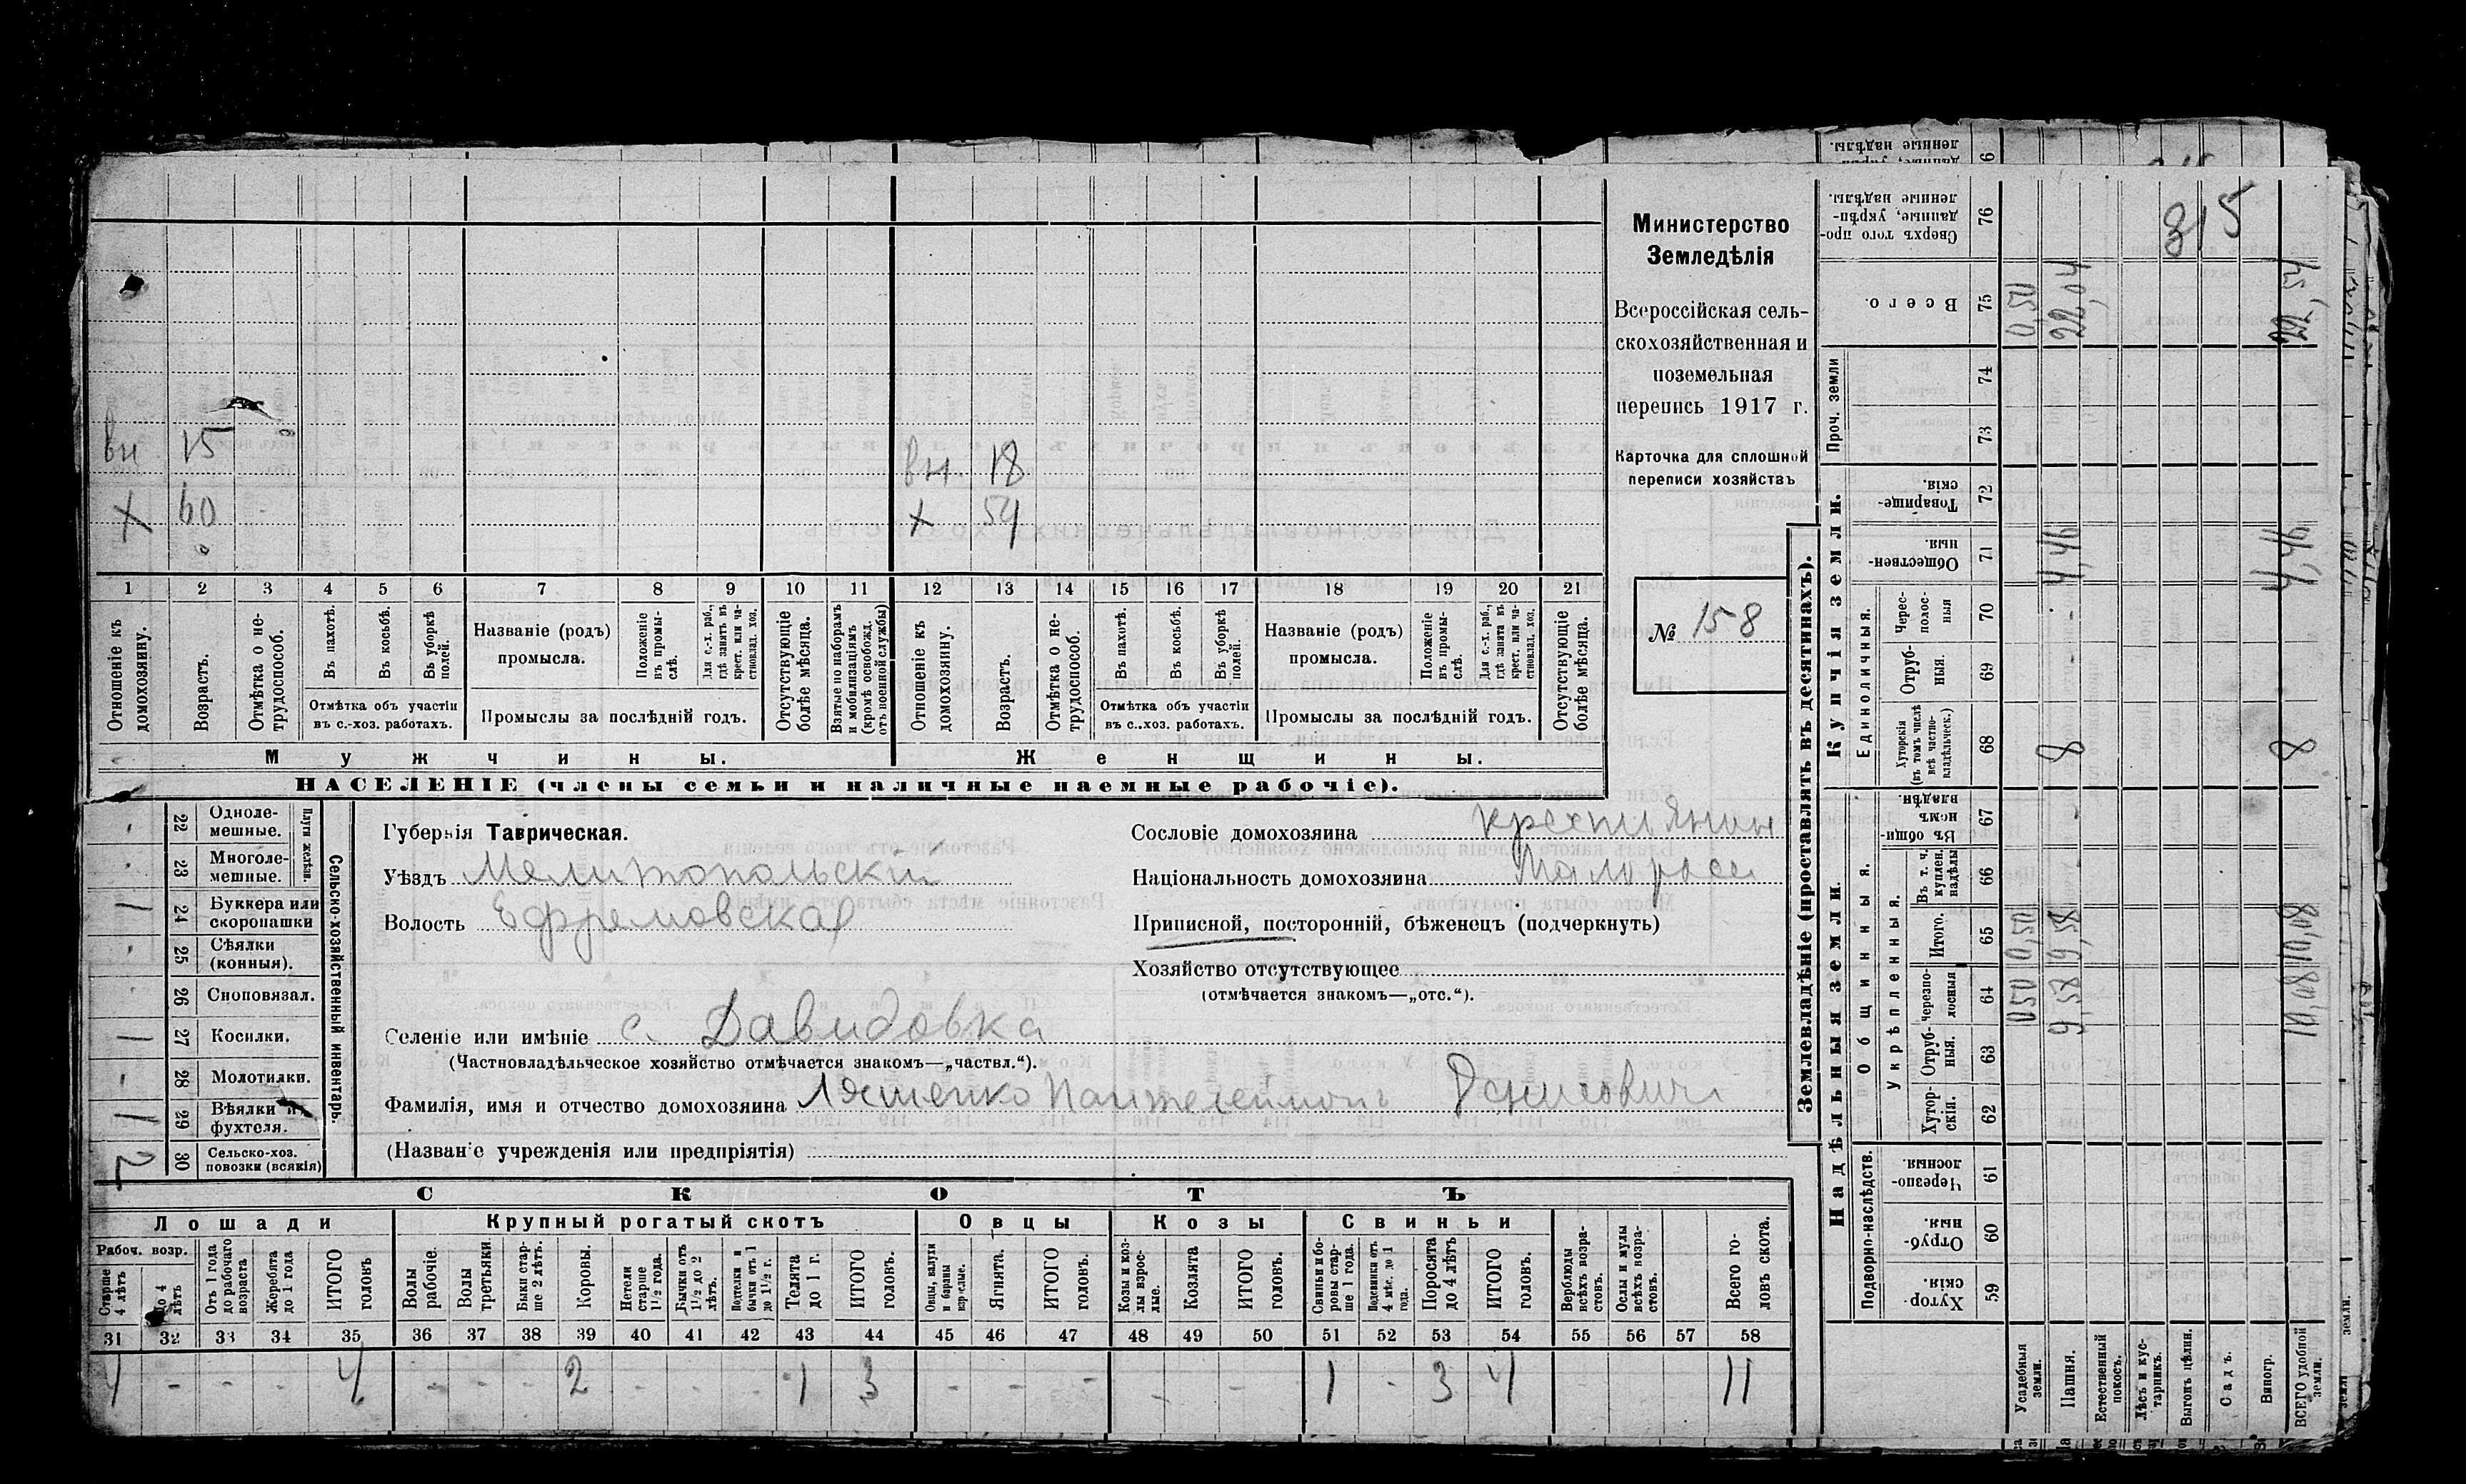 вн 15 вн. 18
х 60 х 59
1 2 3 4 5 6 7 8 9 10 11 12 13 14 15 16 17 18 19 20 21
Отношеніе къ домохозяину.
Возрастъ.
Отмѣтка о не-трудоспособ.
Въ пахотѣ.
Въ косьбѣ.
Въ уборкѣ полей.
Отмѣтка объ участіи
въ с.-хоз. работахъ.
Названіе (родъ)
промысла.
Положеніе въ промы-слѣ.
Для с.-х. раб., гдѣ занятъ въ крест. или ча-стновлад. хоз.
Промыслы за послѣдній годъ.
Отсутствующіе болѣе мѣсяца.
Взятые по наборамъ и мобилизаціямъ (кромѣ освобожд. отъ военной службы)
Отношеніе къ домохозяину.
Возрастъ.
Отмѣтка о не-трудоспособ.
Въ пахотѣ.
Въ косьбѣ.
Въ уборкѣ полей.
Отмѣтка объ участіи
въ с.-хоз. работахъ.
Названіе (родъ)
промысла.
Положеніе въ промы-слѣ.
Для с.-х. раб., гдѣ занята въ крест. или ча-стновлад. хоз.
Промыслы за послѣдній годъ.
Отсутствующіе болѣе мѣсяца.
Мужчины. Женщины.
НАСЕЛЕНІЕ (члены семьи и наличные наемные рабочіе).
Министерство
Земледѣлія
Всероссійская сель-
скохозяйственная и
поземельная
перепись 1917 г.
Карточка для сплошной
переписи хозяйствъ
№ 158
Сельско-хозяйственный инвентарь.
Плуги желѣзн.
22 Одноле-
мешные.
23 Многоле-
мешные.
1 24 Буккера или
скоропашки
25 Сѣялки
(конныя).
26 Сноповязал.
1 27 Косилки.
28 Молотилки.
1 29 Вѣялки и
фухтеля.
2 30 Сельско-хоз.
повозки (всякія)
Губернія Таврическая.
Уѣздъ Мелитопольскій
Волость Ефремовская
Сословіе домохозяина крестьянин
Національность домохозяина Малоросс
Приписной, посторонній, бѣженецъ (подчеркнуть)
Хозяйство отсутствующее
(отмѣчается знакомъ—„отс.“).
Селеніе или имѣніе с. Давидовка
(Частновладѣльческое хозяйство отмѣчается знакомъ—„частвл.“).
Фамилія, имя и отчество домохозяина Ляшенко Пантелеймонъ Денисович
(Названіе учрежденія или предпріятія)
СКОТЪ
Лошади Крупный рогатый скотъ Овцы Козы Свиньи
Рабоч. возр.
Старше 4 лѣтъ
До 4 лѣтъ
Отъ 1 года до рабочаго возраста
Жеребята до 1 года
ИТОГО головъ
Волы рабочіе.
Волы третьяки.
Быки стар-ше 2 лѣтъ.
Коровы.
Нетели старше 1½ года.
Бычки отъ 1½ до 2 лѣтъ.
Подтелки и бычки отъ 1 до 1½ г.
Телята до 1 г.
ИТОГО головъ.
Овцы, валухи и бараны взрослые.
Ягнята.
ИТОГО головъ.
Козы и коз-лы взрос-лые.
Козлята
ИТОГО головъ.
Свиньи и бо-ровы стар-ше 1 года.
Подсвинки отъ 4 мѣс. до 1 года.
Поросята до 4 лѣтъ
ИТОГО головъ.
Верблюды всѣхъ возра-стовъ.
Ослы и мулы всѣхъ возра-стовъ.
Всего го-ловъ скота.
31 32 33 34 35 36 37 38 39 40 41 42 43 44 45 46 47 48 49 50 51 52 53 54 55 56 57 58
4 - - - 4 - - - 2 - - - 1 3 - - - - - 1 - 3 4 11
Землевладѣніе (проставлять въ десятинахъ).
Сверхъ того про-данные, укрѣп-ленные надѣлы. 76 815
Всего. 75 0,50 22,04 22,54
Проч. земли 74
73
Купчія земли.
Товарище-скія. 72
Обществен-ныя. 71 4,46 4,46
Единоличныя.
Черес-полос-ныя 70
Отруб-ныя. 69
Хуторскія (въ томъ числѣ всѣ частно-владѣльческ.) 68 8 8
Надѣльныя земли.
Общинныя.
Въ общи номъ владѣн. 67
Укрѣпленныя.
Въ т. ч. куплен. надѣлы 66
Итого. 65 0,50 9,58 10,08
Черезпо-лосныя 64 0,50 9,58 10,08
Отруб-ныя. 63
Хутор-скія. 62
Подворно-наслѣдств.
Черезпо-лосныя. 61
Отруб-ныя. 60
Хутор-скія. 59
Усадебныя земли.
Пашня.
Естественный покосъ.
Лѣсъ и кус-тарникъ.
Выгонъ цѣлин.
Садъ.
Виногр.
ВСЕГО удобной земли.